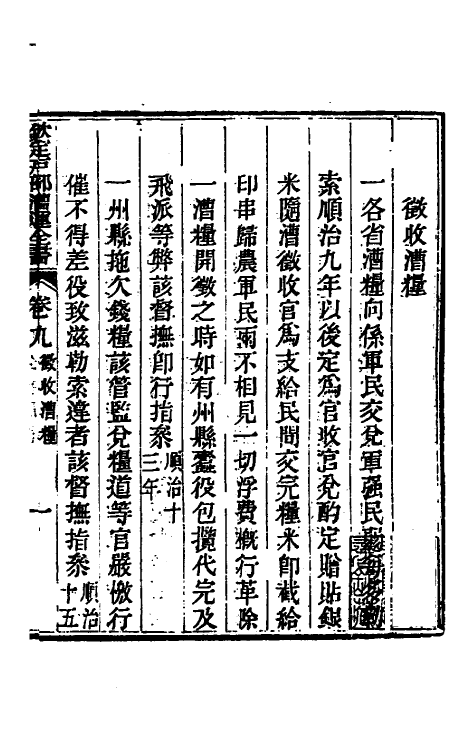 徵收漕糧
一各省漕糧向係軍民交兌軍强民
索順治九年以後定爲官收官兌酌定贈貼銀
米隨漕徵收官爲支給民間交完糧米卽截給
印串歸農軍民兩不相見一切浮費槪行革除
一漕糧開徵之時如有州縣蠹役包攬代完及
飛派等弊該督撫卽行指叅順治十三年
一州縣拖欠錢糧該管監兌糧道等官嚴檄行
催不得差役致滋勒索違者該督撫指叅順治十五
欽定戶部漕運全書 卷九 徵收漕糧 一